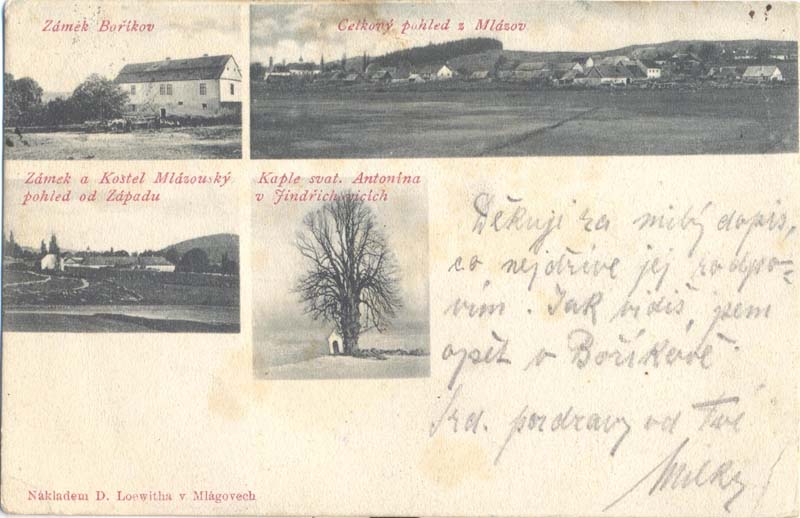 Zámek Boříkov
Celkový pohled z Mlázov
Zámek a Kostel Mlázouský
pohled od Západu
Kaple svat. Antonína
v Jindřichovicích
Děkuji za milý dopis,
co nejdříve jej zodpo-
vím. Jak vidíš, jsem
opět v Boříkově
Srd. pozdravy od Tvé
Milky
Nákladem D. Loewitha v Mlágovech